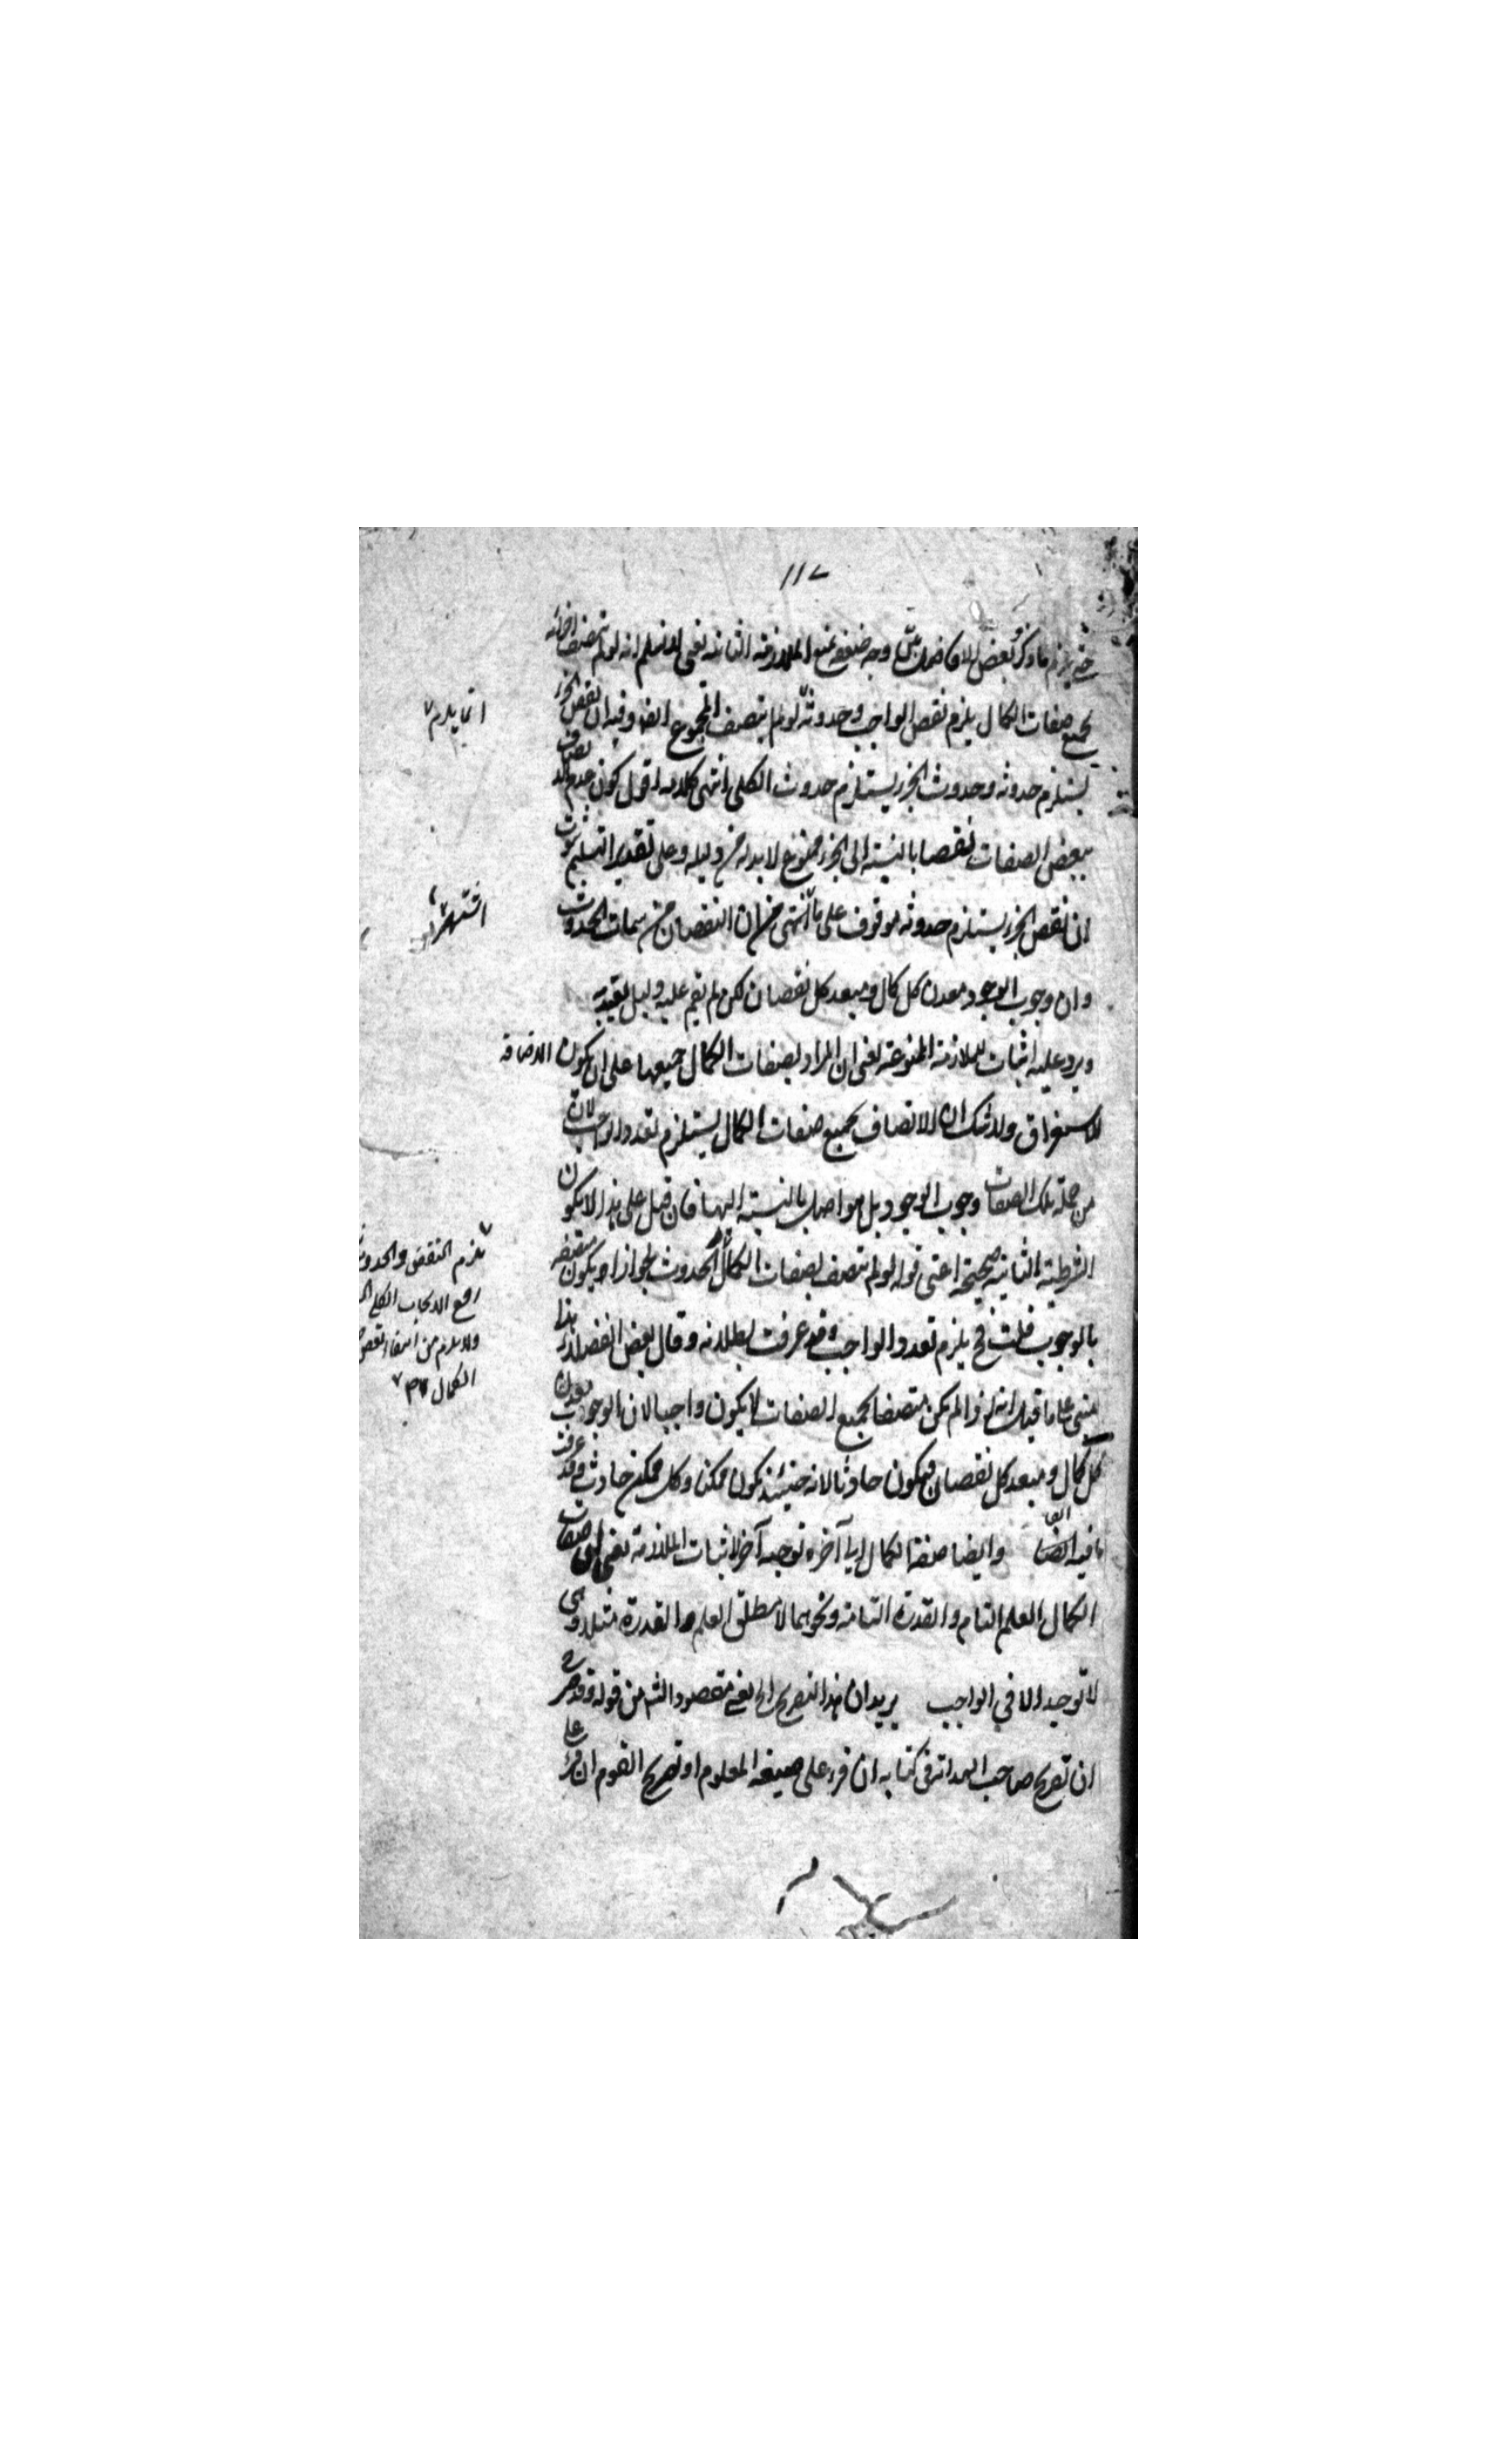 ١١٧
ما ذكره بعض الافاضل بين وجه ضعفه بمنع الملازمة الثانية يعنى لا نسلم انه لو لم يتصف اجزائه
بجميع صفات الكمال يلزم نقص الواجب وحدوثه لو لم يتصف المجموع ايضا وفيه ان نقص الجزء
يستلزم حدوثه وحدوث الجزء يستلزم حدوث الكل انتهى كلامه اقول كون عدم اتصاف
ببعض الصفات نقصا بالنسبة الى الجزء ممنوع لا بد له من دليل وعلى تقدير التسليم ثبوت
ان نقص الجزء يستلزم حدوثه موقوف على ما انتهى من ان النقصان من سمات الحدوث
وان وجوب الوجود معدن كل كمال ومبعد كل نقصان لكن لم يقم عليه دليل يعتد به
ويرد عليه اثبات للملازمة الممنوعة يعنى ان المراد بصفات الكمال جميعها على ان يكون الاضافة
للاستغراق ولا شك ان الاتصاف بجميع صفات الكمال يستلزم تعدد الواجب لان
من جملة تلك الصفات وجوب الوجود بل هو اصل بالنسبة اليها فان قيل على هذا لا يكون
الشرطية الثانية صحيحة اعنى قوله لو لم يتصف بصفات الكمال الحدوث لجواز ان يكون متصفة
بالوجوب قلت فح يلزم تعدد الواجب وقد عرفت بطلانه وقال بعض الفضلاء هذا
مبنى على ما قيل انه اذا لم يكن متصفا بجميع الصفات لا يكون واجبا لان الوجوب معدن
كل كمال ومبعد كل نقصان فيكون حادثا لانه حينئذ يكون ممكنا وكل ممكن حادث وقد عرفت
ما فيه ايضا وايضا صفة الكمال الى آخره توجيه آخر لاثبات الملازمة يعنى ان صفات
الكمال العلم التام والقدرة التامة ونحوهما لا مطلق العلم والقدرة مثلا وهى
لا توجد الا في الواجب يريد ان هذا التصريح الخ يعنى مقصود الش من قوله وقد صرح
ان تصريح صاحب البداية فى كتابه ان قرء على صيغة المعلوم او تصريح القوم ان قرء على
انما يلزم
اشتهر
يلزم النقص والحدوث
رفع الايجاب الكلى
ولا يلزم من انتفاء بعض
الكمال